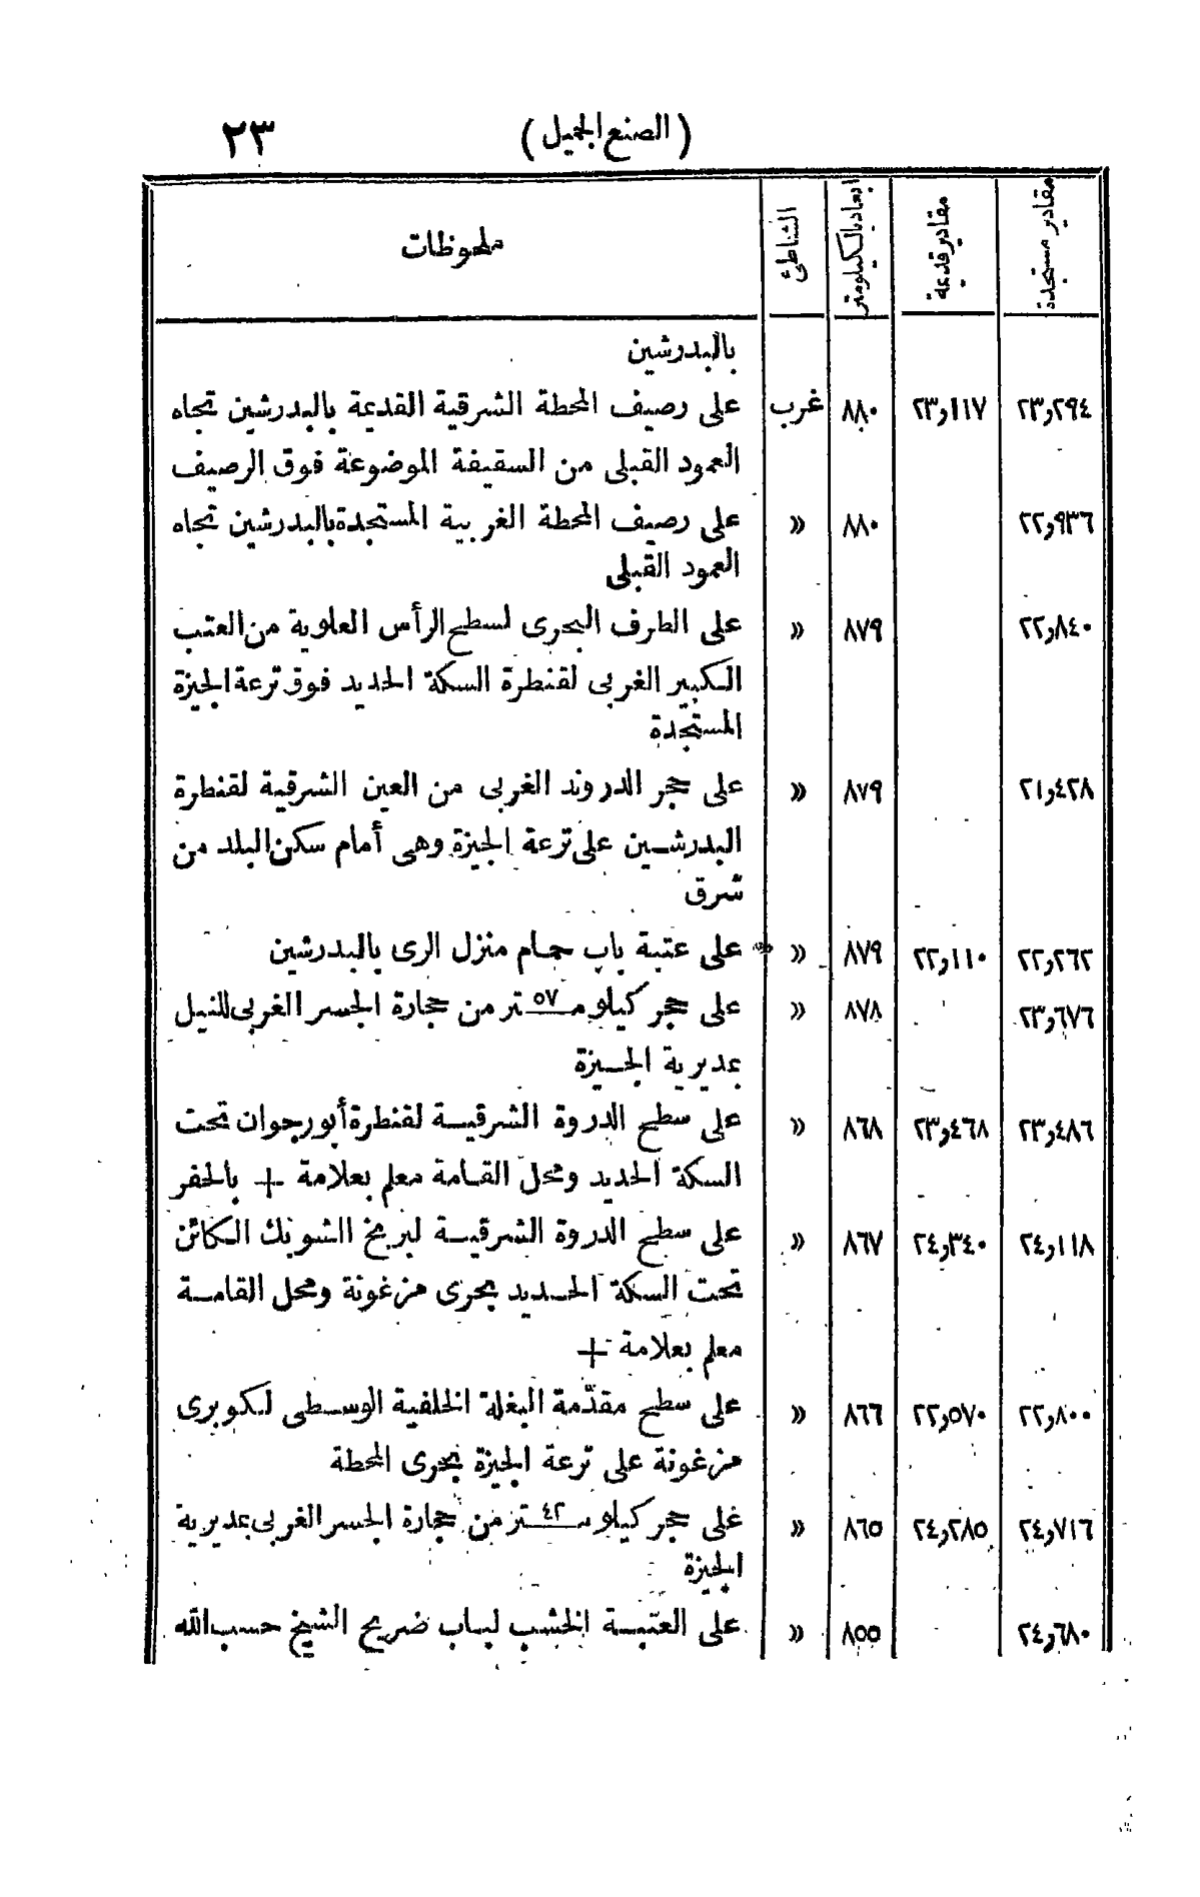 (الصنع الجميل) ٢٣
مقادير مستجدة | مقادير قديمة | ابعاد بالكيلومتر | الشاطئ | ملحوظات
بالبدرشين
٢٣,٢٩٤ | ٢٣,١١٧ | ٨٨٠ | غرب | على رصيف المحطة الشرقية القديمة بالبدرشين تجاه
العمود القبلى من السقيفة الموضوعة فوق الرصيف
٢٢,٩٣٦ | | ٨٨٠ | » | على رصيف المحطة الغربية المستجدة بالبدرشين تجاه
العمود القبلى
٢٢,٨٤٠ | | ٨٧٩ | » | على الطرف البحرى لسطح الرأس العلوية من العتب
الكبير الغربى لقنطرة السكة الحديد فوق ترعة الجيزة
المستجدة
٢١,٤٢٨ | | ٨٧٩ | » | على حجر الدروند الغربى من العين الشرقية لقنطرة
البدرشين على ترعة الجيزة وهى أمام سكن البلد من
شرق
٢٢,٢٦٢ | ٢٢,١١٠ | ٨٧٩ | » | على عتبة باب حمام منزل الرى بالبدرشين
٢٣,٦٧٦ | | ٨٧٨ | » | على حجر كيلومتر ٥٧ من حجارة الجسر الغربى للنيل
بمديرية الجيزة
٢٣,٤٨٦ | ٢٣,٤٦٨ | ٨٦٨ | » | على سطح الدروة الشرقية لقنطرة أبو رجوان تحت
السكة الحديد ومحل القامة معلم بعلامة + بالحفر
٢٤,١١٨ | ٢٤,٣٤٠ | ٨٦٧ | » | على سطح الدروة الشرقية لبربخ الشوبك الكائن
تحت السكة الحديد بحرى مزغونة ومحل القامة
معلم بعلامة +
٢٢,٨٠٠ | ٢٢,٥٧٠ | ٨٦٦ | » | على سطح مقدّمة البغلة الخلفية الوسطى لكوبرى
مزغونة على ترعة الجيزة بحرى المحطة
٢٤,٧١٦ | ٢٤,٢٨٥ | ٨٦٥ | » | على حجر كيلومتر ٤٢ من حجارة الجسر الغربى بمديرية
الجيزة
٢٤,٦٨٠ | | ٨٥٥ | » | على العتبة الخشب لباب ضريح الشيخ حسب الله